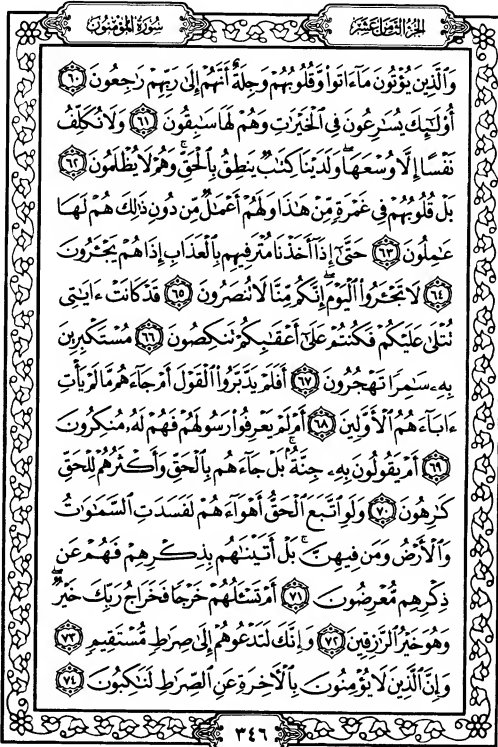 سورة المؤمنون
الجزء الثامن عشر
وَٱلَّذِينَ يُؤْتُونَ مَآ ءَاتَوا۟ وَّقُلُوبُهُمْ وَجِلَةٌ أَنَّهُمْ إِلَىٰ رَبِّهِمْ رَٰجِعُونَ ٦٠
أُو۟لَٰٓئِكَ يُسَٰرِعُونَ فِى ٱلْخَيْرَٰتِ وَهُمْ لَهَا سَٰبِقُونَ ٦١ وَلَا نُكَلِّفُ
نَفْسًا إِلَّا وُسْعَهَا ۖ وَلَدَيْنَا كِتَٰبٌ يَنطِقُ بِٱلْحَقِّ ۚ وَهُمْ لَا يُظْلَمُونَ ٦٢
بَلْ قُلُوبُهُمْ فِى غَمْرَةٍ مِّنْ هَٰذَا وَلَهُمْ أَعْمَٰلٌ مِّن دُونِ ذَٰلِكَ هُمْ لَهَا
عَٰمِلُونَ ٦٣ حَتَّىٰٓ إِذَآ أَخَذْنَا مُتْرَفِيهِم بِٱلْعَذَابِ إِذَا هُمْ يَجْـَٔرُونَ
٦٤ لَا تَجْـَٔرُوا۟ ٱلْيَوْمَ ۖ إِنَّكُم مِّنَّا لَا تُنصَرُونَ ٦٥ قَدْ كَانَتْ ءَايَٰتِى
تُتْلَىٰ عَلَيْكُمْ فَكُنتُمْ عَلَىٰٓ أَعْقَٰبِكُمْ تَنكِصُونَ ٦٦ مُسْتَكْبِرِينَ
بِهِۦ سَٰمِرًا تَهْجُرُونَ ٦٧ أَفَلَمْ يَدَّبَّرُوا۟ ٱلْقَوْلَ أَمْ جَآءَهُم مَّا لَمْ يَأْتِ
ءَابَآءَهُمُ ٱلْأَوَّلِينَ ٦٨ أَمْ لَمْ يَعْرِفُوا۟ رَسُولَهُمْ فَهُمْ لَهُۥ مُنكِرُونَ
٦٩ أَمْ يَقُولُونَ بِهِۦ جِنَّةٌۢ ۚ بَلْ جَآءَهُم بِٱلْحَقِّ وَأَكْثَرُهُمْ لِلْحَقِّ
كَٰرِهُونَ ٧٠ وَلَوِ ٱتَّبَعَ ٱلْحَقُّ أَهْوَآءَهُمْ لَفَسَدَتِ ٱلسَّمَٰوَٰتُ
وَٱلْأَرْضُ وَمَن فِيهِنَّ ۚ بَلْ أَتَيْنَٰهُم بِذِكْرِهِمْ فَهُمْ عَن
ذِكْرِهِم مُّعْرِضُونَ ٧١ أَمْ تَسْـَٔلُهُمْ خَرْجًا فَخَرَاجُ رَبِّكَ خَيْرٌ ۖ
وَهُوَ خَيْرُ ٱلرَّٰزِقِينَ ٧٢ وَإِنَّكَ لَتَدْعُوهُمْ إِلَىٰ صِرَٰطٍ مُّسْتَقِيمٍ ٧٣
وَإِنَّ ٱلَّذِينَ لَا يُؤْمِنُونَ بِٱلْءَاخِرَةِ عَنِ ٱلصِّرَٰطِ لَنَٰكِبُونَ ٧٤
٣٤٦